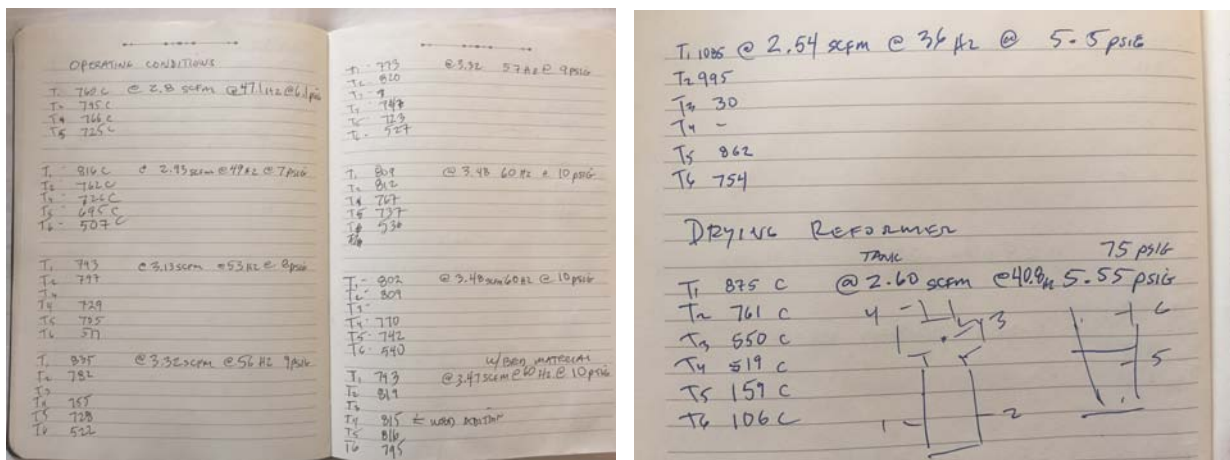 OPERATING CONDITIONS
T1 760 C @ 2.8 scfm @47.1Hz@6.1psig
T2 795 C
T4 766 C
T5 725 C
T1 - 816 C @ 2.93 scfm @49Hz @7psig
T2 - 762 C
726 C
T5 - 695 C
T6 - 507 C
T1 793 @3.13scfm @53Hz @ 8psig
T2 797
T3
T4 729
T5 705
T6 517
T1 835 @3.32scfm @56Hz 9psig
T2 782
T3
T4 755
T5 728
T6 522
T1 - 773 @3.32 57Hz@ 9psig
T2 820
747
723
527
T1 809 @ 3.48 60 Hz @ 10psig
T2 812
T4 767
T5 737
T6 530
T1 - 802 @ 3.48scfm60Hz @ 10psig
T2 - 809
T3 -
T4 - 770
T5 - 742
T6 - 540
W/ BED MATERIAL
T1 793 @3.47scfm@60 Hz @ 10psig
T2 819
T3
T4 815 ← WOOD ADDITION
T5 816
T6 795
T1 1085 @ 2.54 scfm @ 36 Hz @ 5.5 psig
T2 995
T3 30
T4 -
T5 862
T6 754
DRYING REFORMER
TANK 75 PSIG
T1 875 C @ 2.60 scfm @40.8Hz 5.55 psig
T2 761 C 4 3 6
T3 550 C
T4 519 C 5
T5 159 C
T6 106 C 1 2